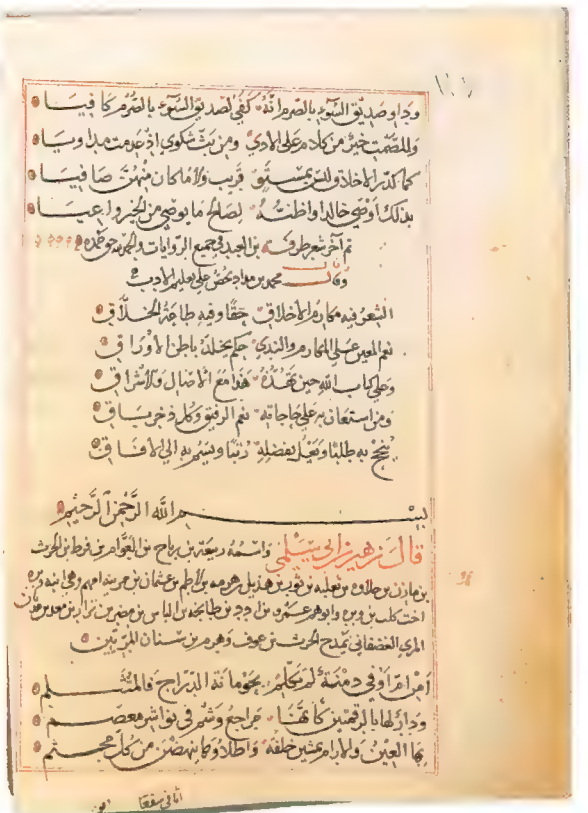 وداو صديق السوء بالصرم انه كفى لصديق السوء بالصرم كافيا
وللصمت خير من كلام على الاذى ومن بث شكوى اذ عدمت مداويا
كما كدر الاخلاق قريب ولاما كان منهن صافيا
بذلك اوصى خالدا واظنه لصالح ما يوصى من الخير واعيا
تم آخر شعر طرفة بن العبد في جميع الروايات والحمد لله حق حمده
وقال محمد بن مواد يحض على تعليم الادب
الشعر فيه مكارم الاخلاق حقا وفيه طاجة الخلاق
نعم المعين على المكارم والندى حكم يخلد باطن الاوراق
وعلى كتاب الله حين تهذه هذا مع الاصال والاشراق
ومن استعان به على حاجاته نعم الرفيق وكل ذخر باق
ينجح به طلبا ويعل بفضله رتبا ويسم به الى الافاق
بسم الله الرحمن الرحيم
قال زهير بن ابي سلمى واسمه ربيعة بن رياح بن العوام بن قرط بن الحرث
بن مازن بن حلاوة بن ثعلبه بن ثور بن هذيل بن هرمه بن لاطم بن عثمان بن مزينة امهم وهي ابنة وبره
اخت كلب بن وبره وابوهم عمرو بن ادد بن طابخه بن الياس بن مضر بن نزار بن معد بن عدنان
المري الغضفاني يمدح الحرث بن عوف وهرم بن سنان المريين
امن ام اوفى دمنة لم تكلم بحومانة الدراج فالمتثلم
ودار لها بالرقمتين كانها مراجع وشم في نواشر معصم
بها العين والارام يمشين خلفة واطلاوها ينهضن من كل مجثم
اثافى سفعا